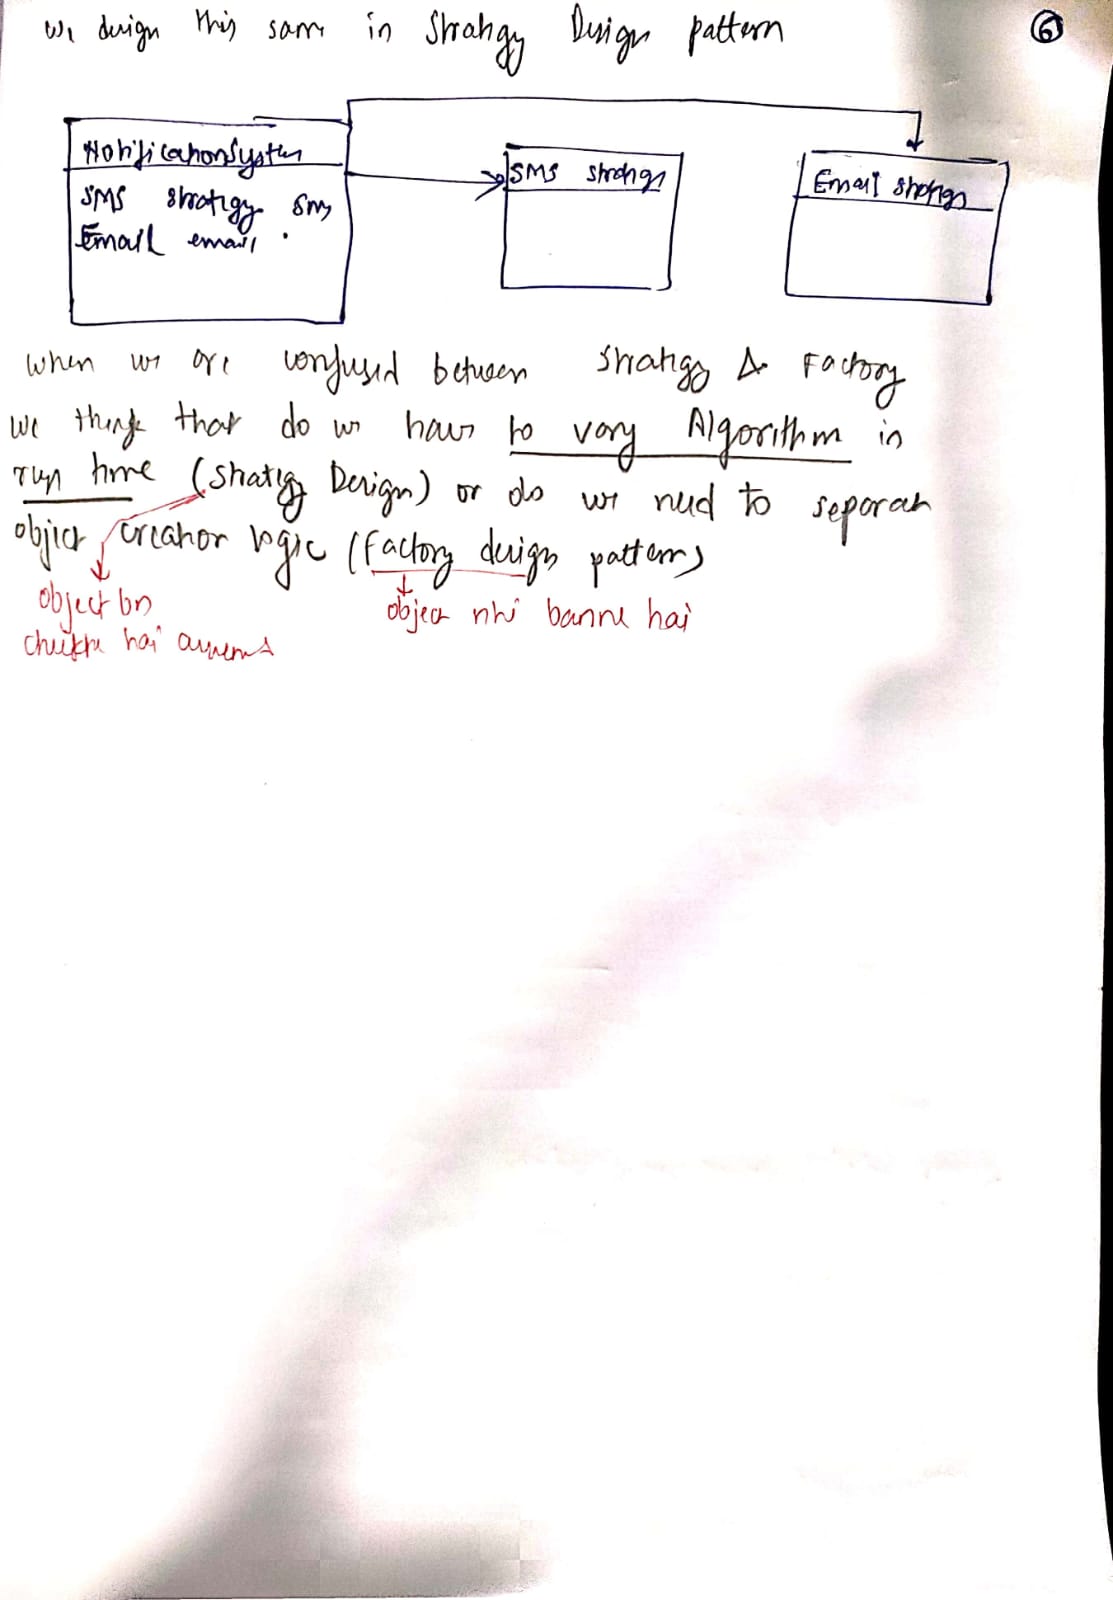 We design this same in Strategy Design pattern
6
NotificationSystem
SMS strategy sms
Email email
SMS strategy
Email strategy
When we are confused between Strategy & Factory
we think that do we have to vary Algorithm in
run time (Strategy Design) or do we need to separate
object creation logic (Factory design pattern)
object bn
chukte hai
object nhi banne hai